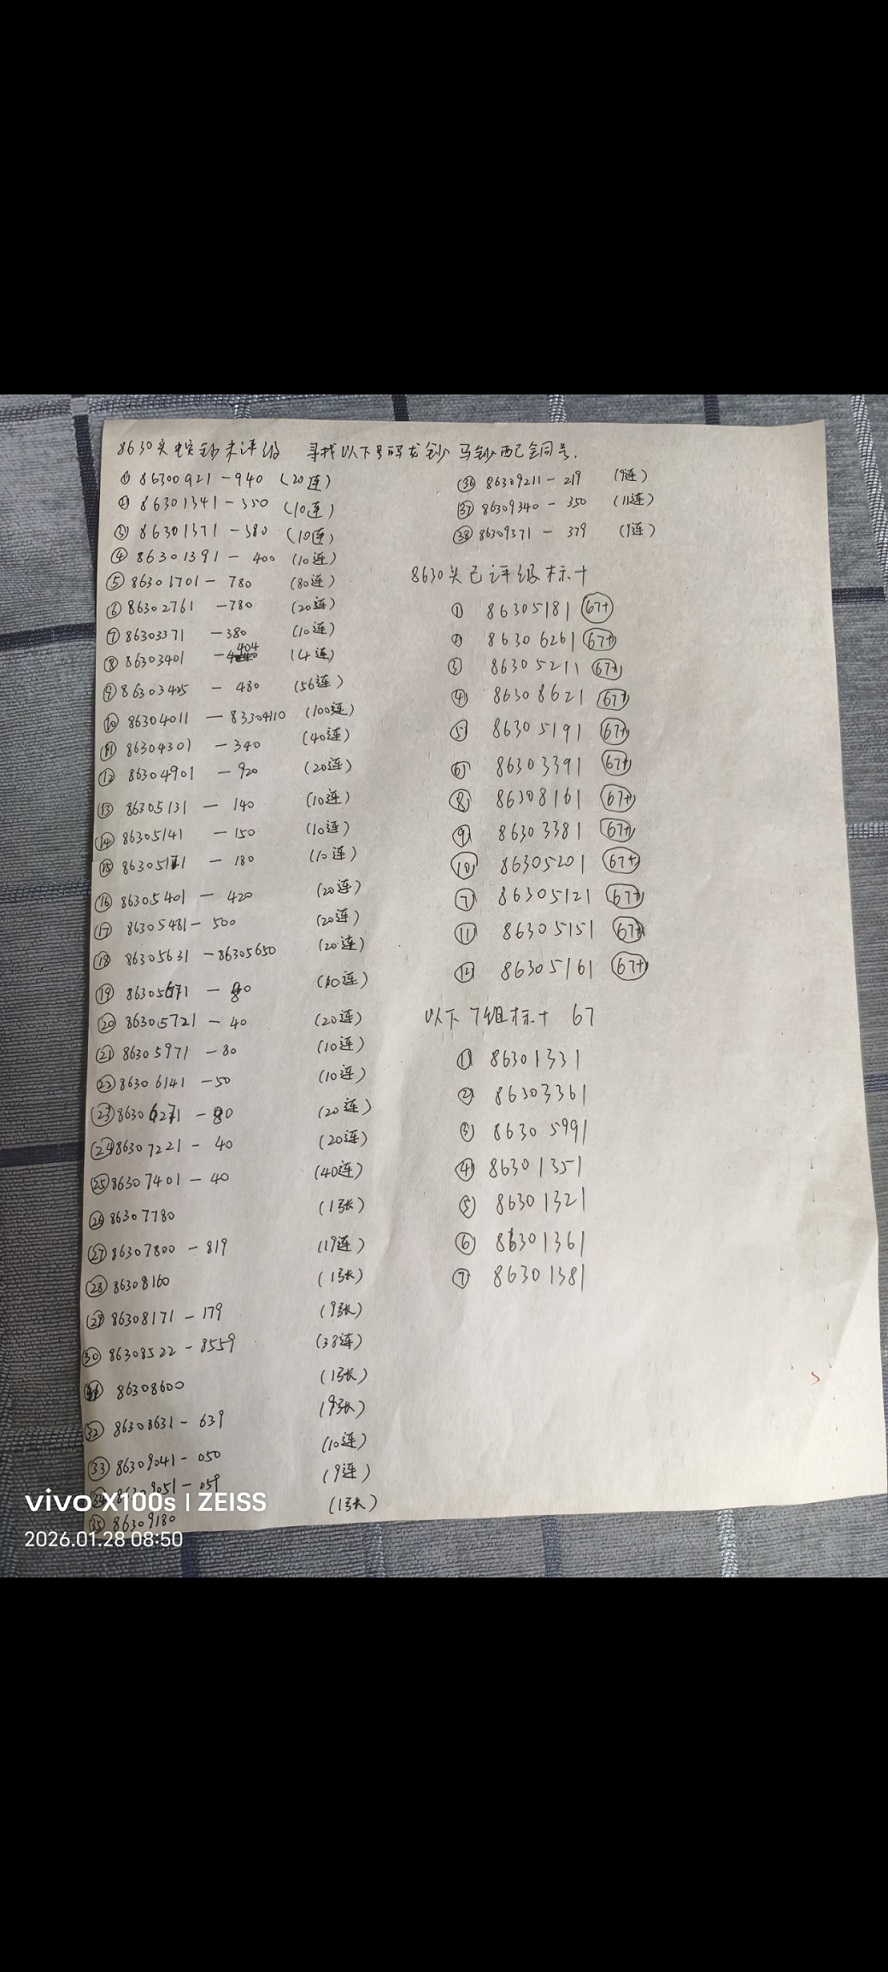 8630头蛇钞未评级 寻找以下号码龙钞马钞配全同号.
① 86300921-940 (20连)
② 86301341-350 (10连)
③ 86301371-380 (10连)
④ 86301391-400 (10连)
⑤ 86301701-780 (80连)
⑥ 86302761-780 (20连)
⑦ 86303371-380 (10连)
⑧ 86303401-404 (4连)
⑨ 86303425-480 (56连)
⑩ 86304011-83304110 (100连)
⑪ 86304301-340 (40连)
⑫ 86304901-920 (20连)
⑬ 86305131-140 (10连)
⑭ 86305141-150 (10连)
⑮ 86305171-180 (10连)
⑯ 86305401-420 (20连)
⑰ 86305481-500 (20连)
⑱ 86305631-86305650 (20连)
⑲ 86305671-80 (10连)
⑳ 86305721-40 (20连)
㉑ 86305971-80 (10连)
㉒ 86306141-50 (10连)
㉓ 86306271-90 (20连)
㉔ 86307221-40 (20连)
㉕ 86307401-40 (40连)
㉖ 86307780 (1张)
㉗ 86307800-819 (19连)
㉘ 86308160 (1张)
㉙ 86308171-179 (9张)
㉚ 86308522-8559 (38连)
㉛ 86308600 (1张)
㉜ 86308631-639 (9张)
㉝ 86309041-050 (10连)
86309051-059 (9连)
㉟ 86309180 (1张)
㊱ 86309211-219 (9连)
㊲ 86309340-350 (11连)
㊳ 86309371-379 (9连)
8630头已评级标十
① 86305181 67+
② 86306261 67+
③ 86305211 67+
④ 86308621 67+
⑤ 86305191 67+
⑥ 86303391 67+
⑧ 86308161 67+
⑨ 86303381 67+
⑩ 86305201 67+
⑦ 86305121 67+
⑪ 86305151 67+
⑫ 86305161 67+
以下7组标十 67
① 86301331
② 86303361
③ 86305991
④ 86301351
⑤ 86301321
⑥ 86301361
⑦ 86301381
vivo X100s | ZEISS
2026.01.28 08:50